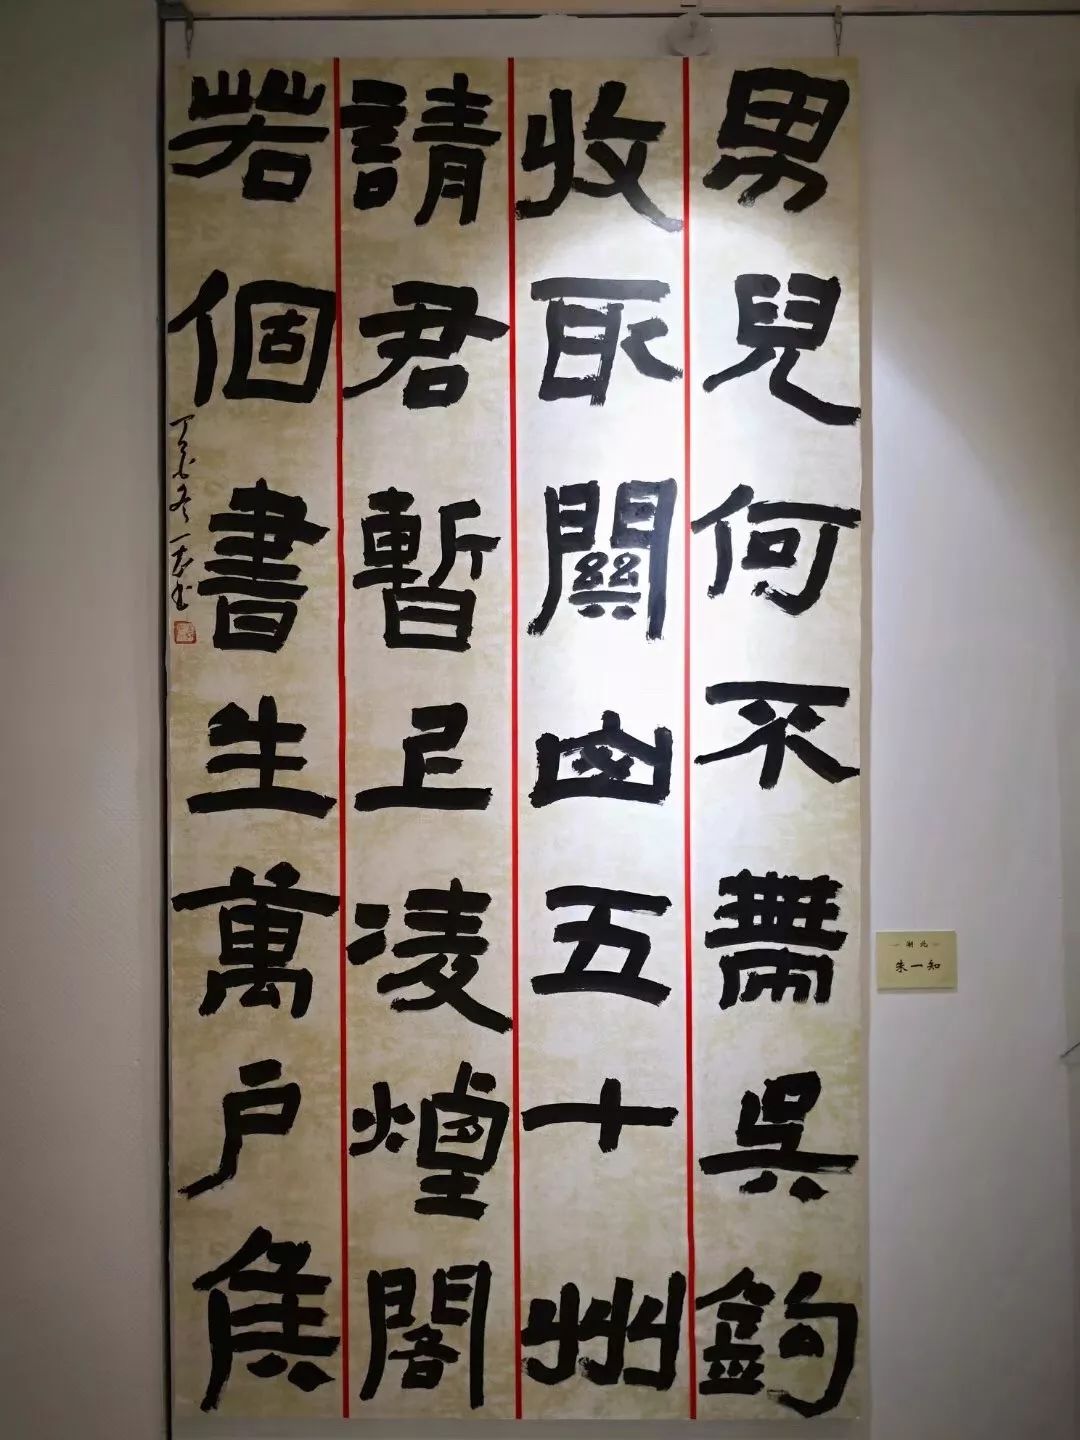 男兒何不帶吳鉤
收取關山五十州
請君暫上凌煙閣
若個書生萬戶侯
丁酉冬一知书
湖北
朱一知